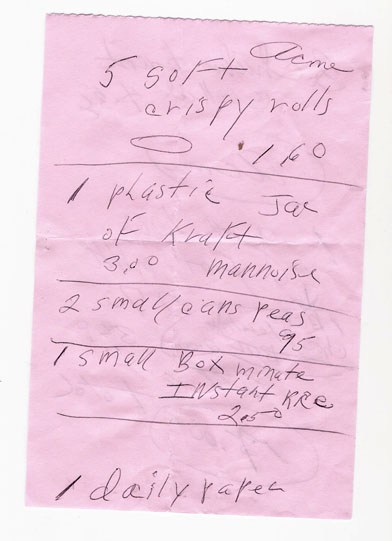 Acme
5 soft
crispy rolls
1.60
1 plastic Jar
of Kraft
3.00 mannoise
2 small cans peas
.95
1 small Box minate
INstant RRe
2.50
1 daily paper